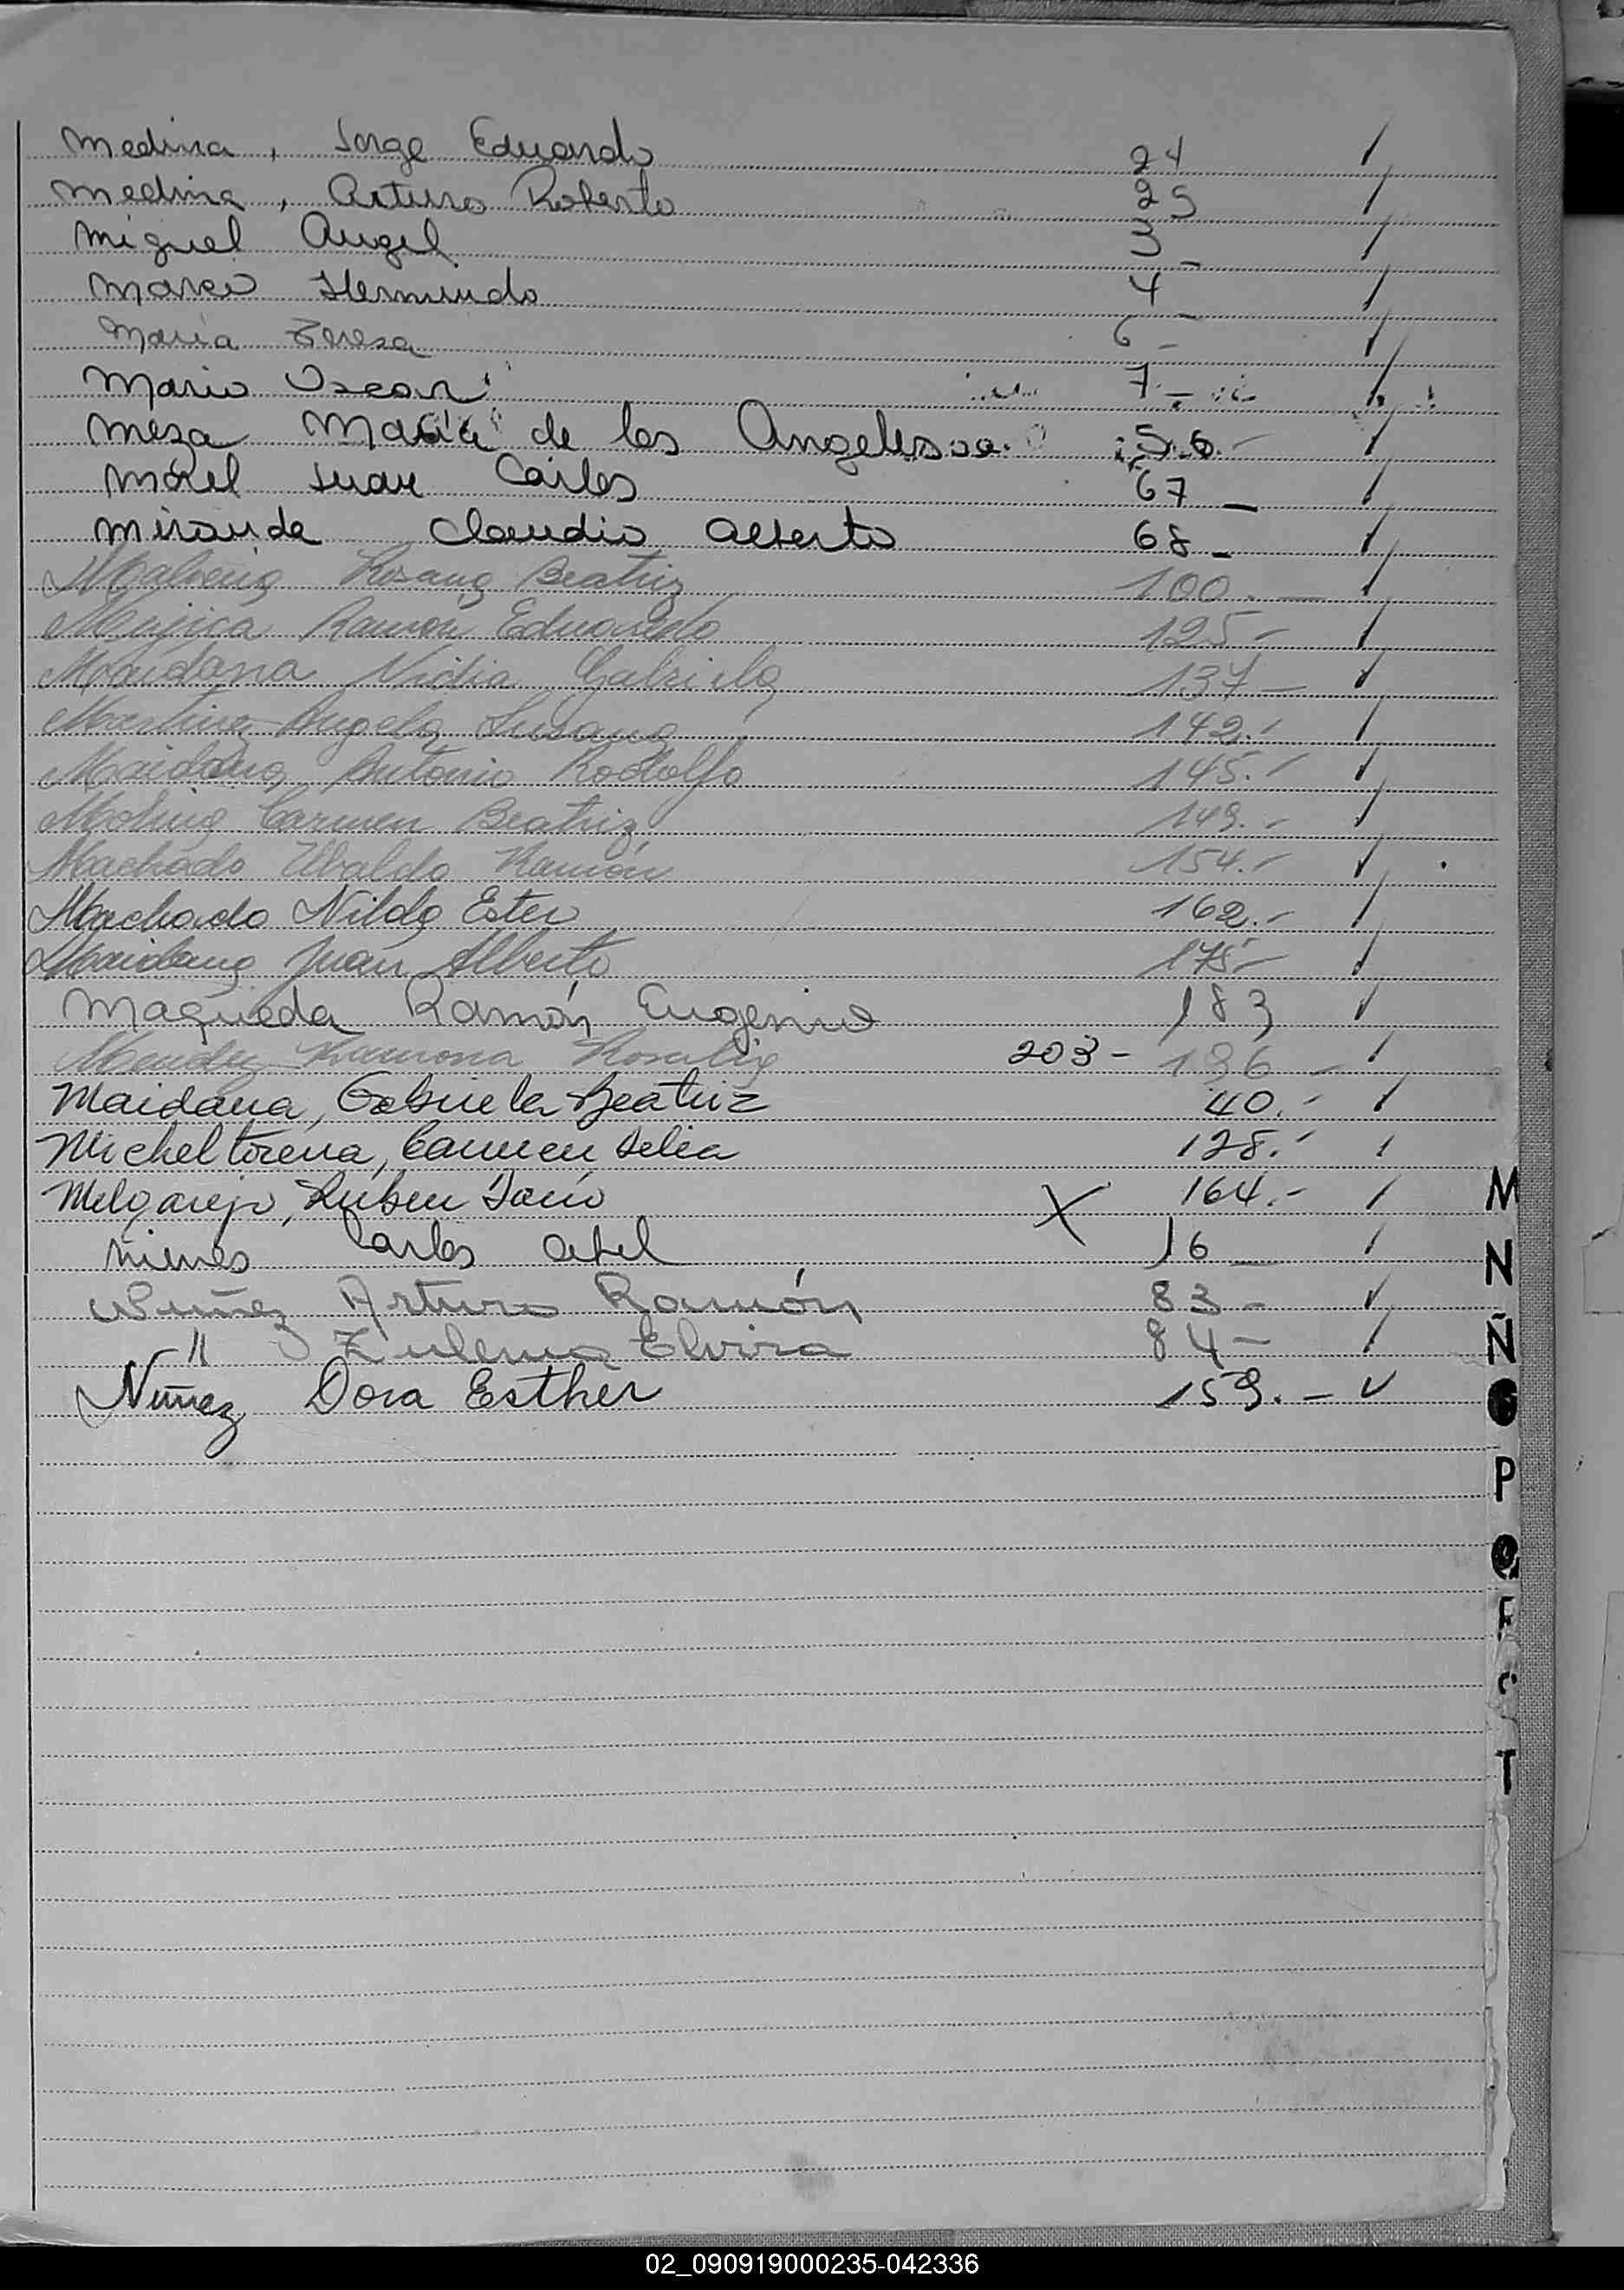 Medina, Jorge Eduardo 24
Medina, Arturo Roberto 25
Miguel Angel 3 -
Marco Hermindo 4 -
Maria Teresa 6 -
Mario Oscar 7. -
Meza Maria de los Angeles 56. -
Morel Juan Carlos 67 -
Miranda Claudio Alberto 68 -
Rosana Beatriz 100. -
Mujica Ramón Eduardo 125 -
Maidana Nidia Gabriela 137 -
Martinez Angela Susana 142. -
Maidana Antonio Rodolfo 145. -
Molina Carmen Beatriz 149. -
Machado Ubaldo Ramón 154. -
Machado Nilda Ester 162. -
Maidana Juan Alberto 175 -
Maqueda Ramón Eugenio 183
Mendez Ramona Rosalia 203 - 196 -
Maidana, Gabriela Beatriz 40. -
Micheltorena, Carmen Delia 128. -
Melgarejo, Ruben Dario X 164. -
Carlos Abel 16 -
Nuñez Arturo Ramón 83 -
" Zulema Elvira 84 -
Nuñez Dora Esther 159. -
M
N
Ñ
O
P
Q
R
T
02_090919000235-042336